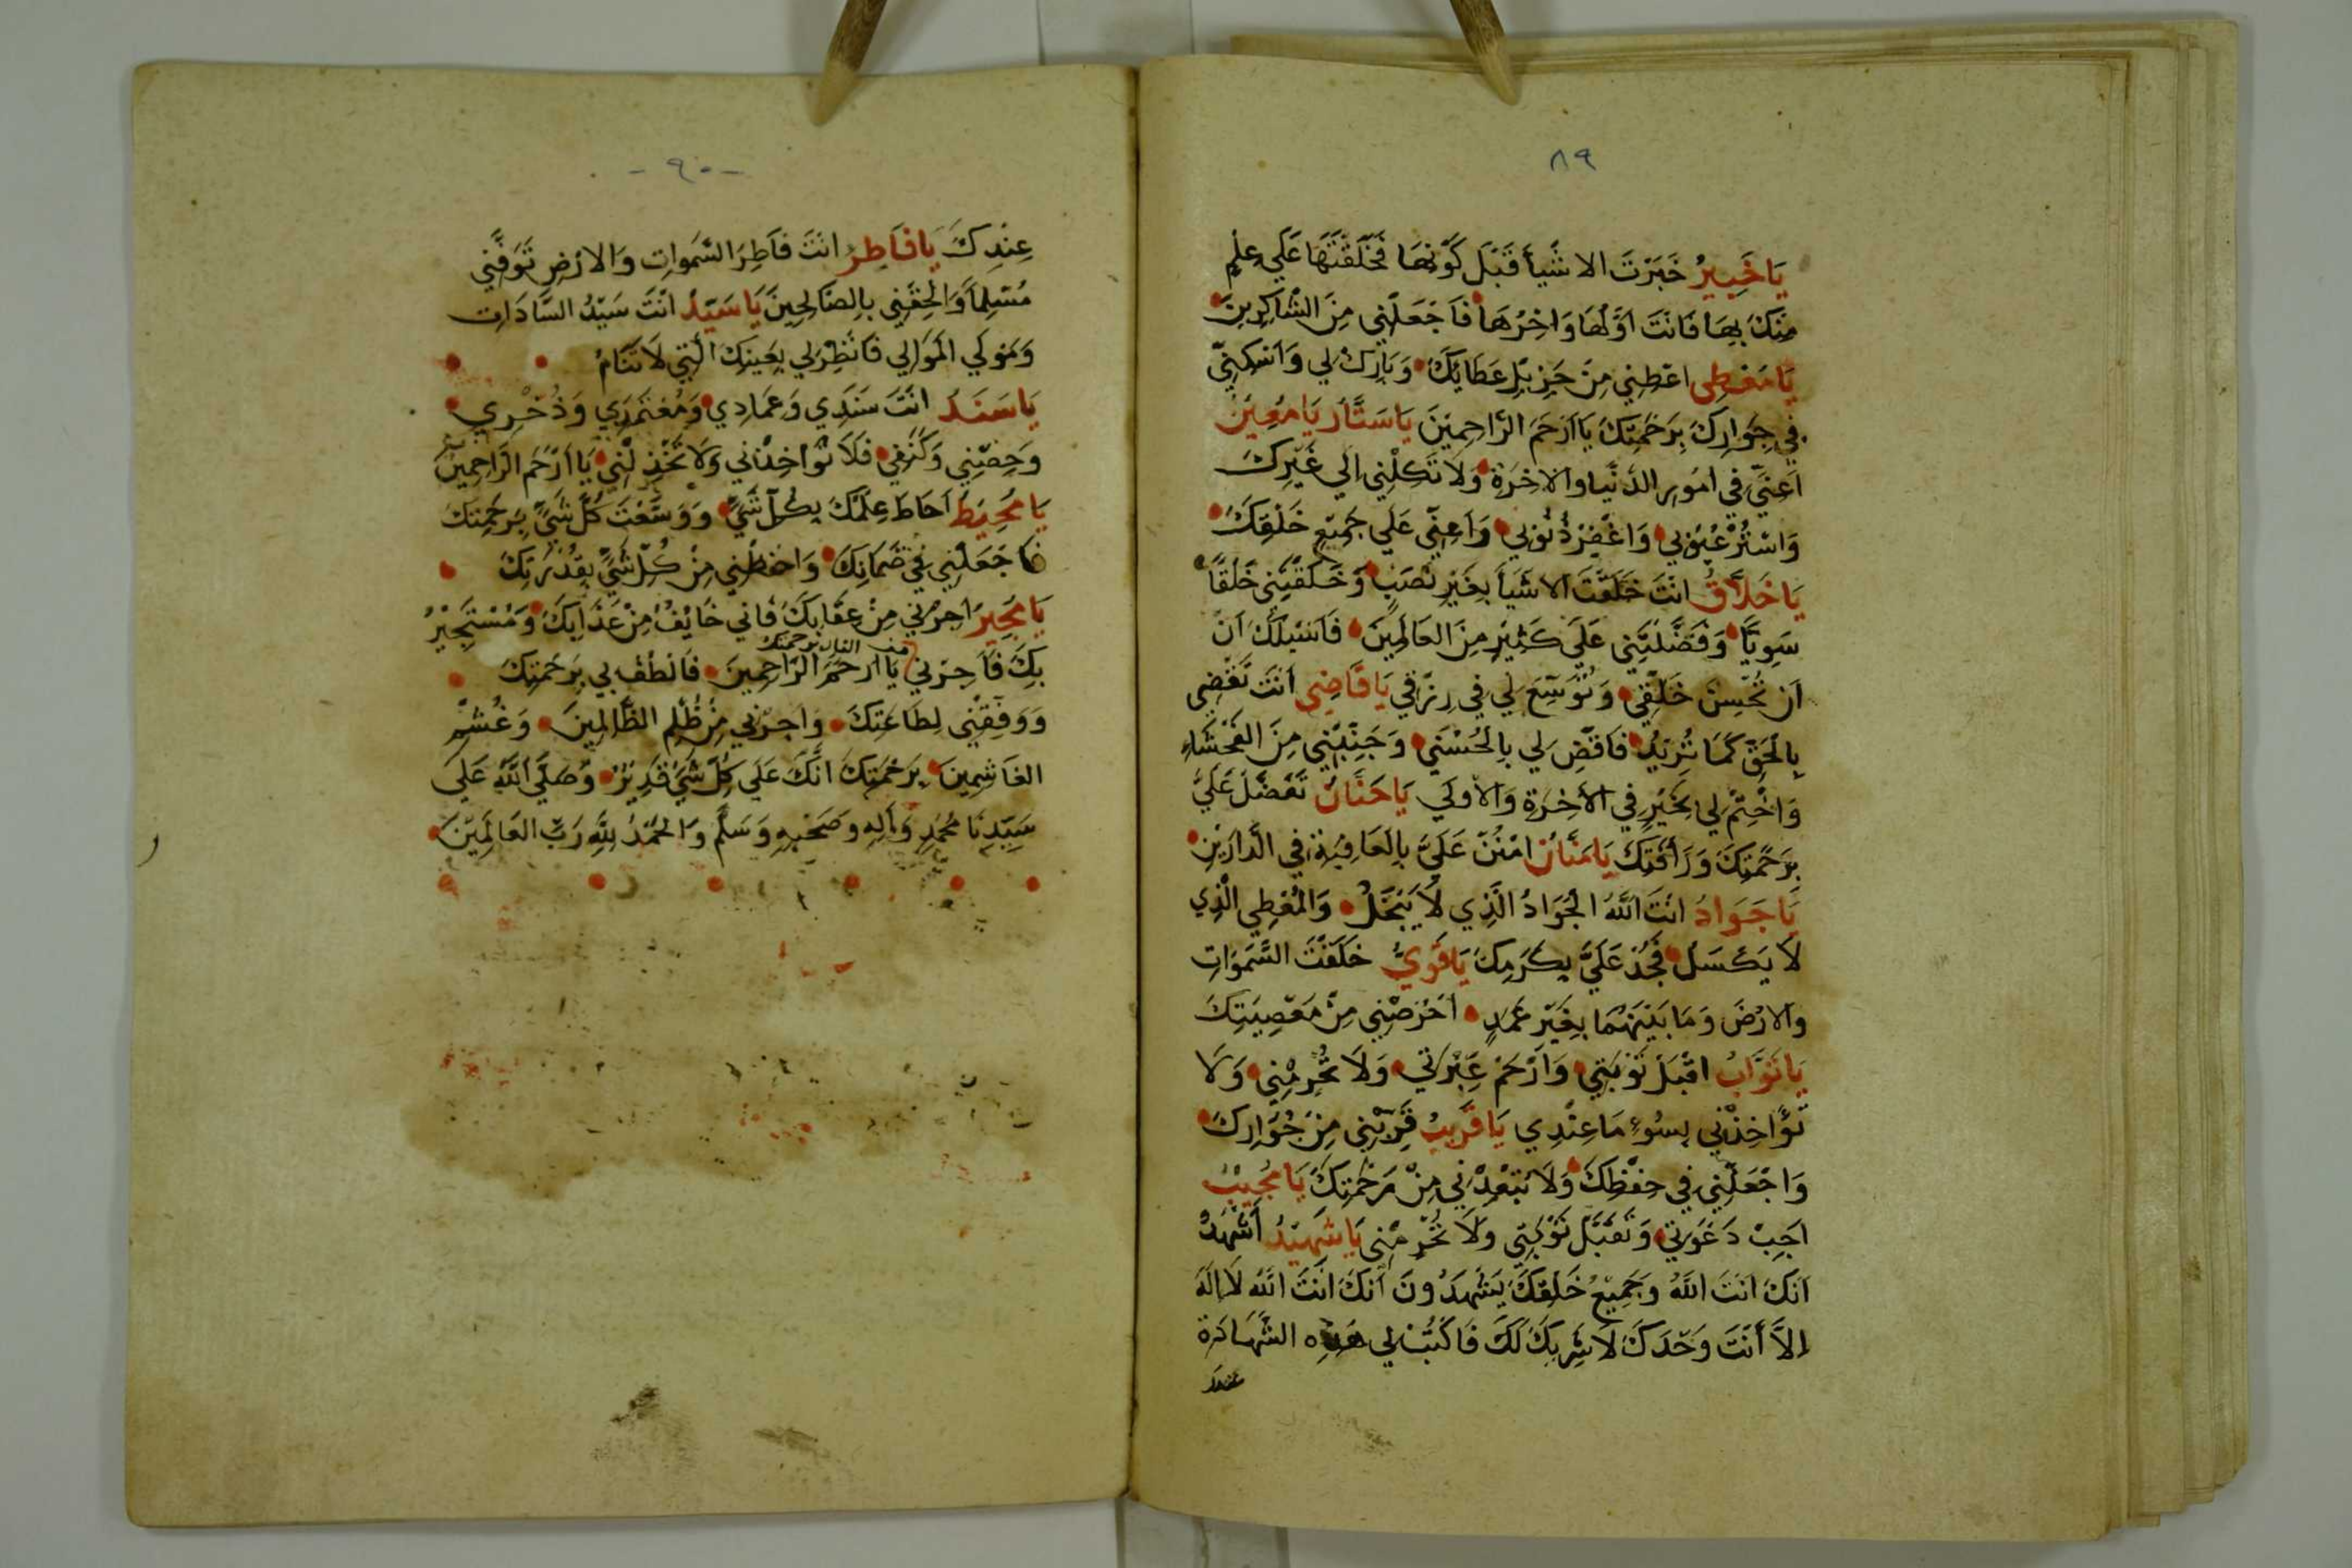 ٨٩
يَا خَبِيرُ خَبَرْتَ الاشَيأَ قَبْلَ كَوْنِهَا فَخَلَقْتَهَا عَلَي عِلْمٍ
مِنْكَ بِهَا فَانَتَ اوَّلُهَا وَاخِرُهَا فَاجَعَلْنِي مِنَ الشَّاكِرِينَ
يَا مُعْطِي اعْطِنِي مِنْ جَزِيلِ عَطَايِكَ وَبَارِكْ لِي وَاسْكِنِّي
فِي جِوَارِكَ بِرَحْمَتِكَ يَا اَرْحَمَ الرَّاحِمِيْنَ يَا سَتَّار يَا مُعِيْنُ
اَعِنِّي فِي امُورِ الدُّنْيا والاخِرَةِ وَلَا تَكِلْنِي الي غَيْرِكَ
وَاسْتُرْ عُيُوبِي وَاغْفِرْ ذُنُوبِي وَاَعِنِّي عَلَي جَمِيْعِ خَلْقِكَ
يَا خَلاَّقُ انتَ خَلَقْتَ الاشَيَأَ بِغَيْرِ نَصَبٍ وَخَلَقْتَنِي خَلْقاً
سَوِيًّا وَفَضَّلْتَنِي عَلَي كَثِيْرٍ مِنَ العَالَمِينَ فَاسَئلُكَ اَنْ
اَن تُحْسِنَ خَلْقِي وَتُوَسِّعَ لِي فِي رِزْقِي يَا قَاضِي اَنتَ تَقْضِي
بِالْحَقِّ كَمَا تُرِيدُ فَاقْضِ لِي بِالحُسْنَي وَجَنِّبْنِي مِنَ الفَحْشَاءِ
وَاخْتِمْ لِي بِخَيْرٍ فِي الاَخِرَةِ وَالأولَي يَا حَنَّانُ تَفَضَّلْ عَلَيَّ
بِرَحْمَتِكَ وَرَأفَتِكَ يَا مَنَّانُ امْنُنْ عَلَيَّ بِالعَافِيَةِ فِي الدَّارَيْنِ
يَا جَوَادُ انْتَ اللّٰهُ الجَوَادُ الَّذِي لَا يَبْخَلُ وَالمُعْطِي الَّذِي
لَا يَكْسَلُ فَجُدْ عَلَيَّ بِكَرَمِكَ يَا قَوِيُّ خَلَقْتَ السَّمَوَاتِ
وَالارْضَ وَمَا بَيْنَهُمَا بِغَيْرِ عَمَدٍ احْرُصْنِي مِنْ مَعْصِيَتِكَ
يَا تَوَّابُ اقْبَلْ تَوْبَتِي وَارْحَمْ عَبْرَتِي وَلَا تَحْرِمْنِي وَلَا
تُؤَاخِذْنِي بِسُوءِ مَا عِنْدِي يَا قَرِيبُ قَرِّبْنِي مِنْ جُوَارِكَ
وَاجْعَلْنِي فِي حِفْظِكَ وَلَا تُبْعِدْنِي مِنْ رَحْمَتِكَ يَا مُجِيْبُ
اَجِبْ دَعْوَتِي وَتَقَبَّلْ تَوْبَتِي وَلَا تَحْرِمْنِي يَا شَهِيْدُ اَشْهَدُ
اَنّكَ انتَ اللّٰهُ وَجَمِيْعُ خَلْقِكَ يَشْهَدُونَ اَنّكَ اَنْتَ اللّٰهُ لَا اِلَهَ
اِلاَّ أَنْتَ وَحْدَكَ لَا شَرِيكَ لَكَ فَاكْتُبْ لِي هَذِهِ الشَّهَادَة
عندك
- ٩٠ -
عِنْدِكَ يَا فَاطِرُ انتَ فَاطِرُ السَّمَواتِ وَالارْضِ تَوَفَّنِي
مُسْلِماً وَالْحِقْنِي بِالصَالِحِينَ يَا سَيّدُ انْتَ سَيّدُ السَّادَاتِ
وَمَولَي المَوَالِي فَانْظُرْ لِي بِعَيْنِكَ الَّتِي لَا تَنَامُ
يَا سَنَدُ انْتَ سَنَدِي وَعِمَادِي وَمُعْتَمَدِي وَذُخْرِي
وَحِصْنِي وَكَنْفِي فَلَا تُوَاخِذْنِي وَلَا تَخْذِلْنِي يَا ارْحَمَ الرَّاحِمِينَ
يَا مُحِيْطُ احَاطَ عِلْمُكَ بِكُلِّ شَيٍّ وَوَسَّعْتَ كُلَّ شَيٍّ بِرَحْمَتِكَ
فَاجَعَلْنِي فِي ضَمَانِكَ وَاحْفَظْنِي مِنْ كُلِّ شَيٍّ بِقُدْرَتِكَ
يَا مُجِيرُ اَجِرْنِي مِنْ عِقَابِكَ فَانِي خَايِفُ مِنْ عَذَابِكَ وَمُسْتَجِيْرُ
من النار برحمتك
بِكَ فَاَجِرْنِي يَا ارْحَمَ الرَّاحِمِينَ فَالْطُفْ بِي بِرَحْمَتِكَ
وَوَفِّقْنِي لِطَاعَتِكَ وَاجِرْنِي مِنْ ظُلْمِ الظَّالِمِينَ وَغُشْمِ
الغَاشِمِينَ بِرَحْمَتِكَ انَّكَ عَلَي كُلِّ شَيٍّ قَدِيْرُ وَصَلَّي اللّٰهُ عَلَي
سَيِّدِنَا مُحَمَّدٍ وَاَلِهِ وصَحْبِهِ وَسَلَّمَ وَالحَمْدُ لِلّٰهِ رَبِّ العَالَمِيْنَ